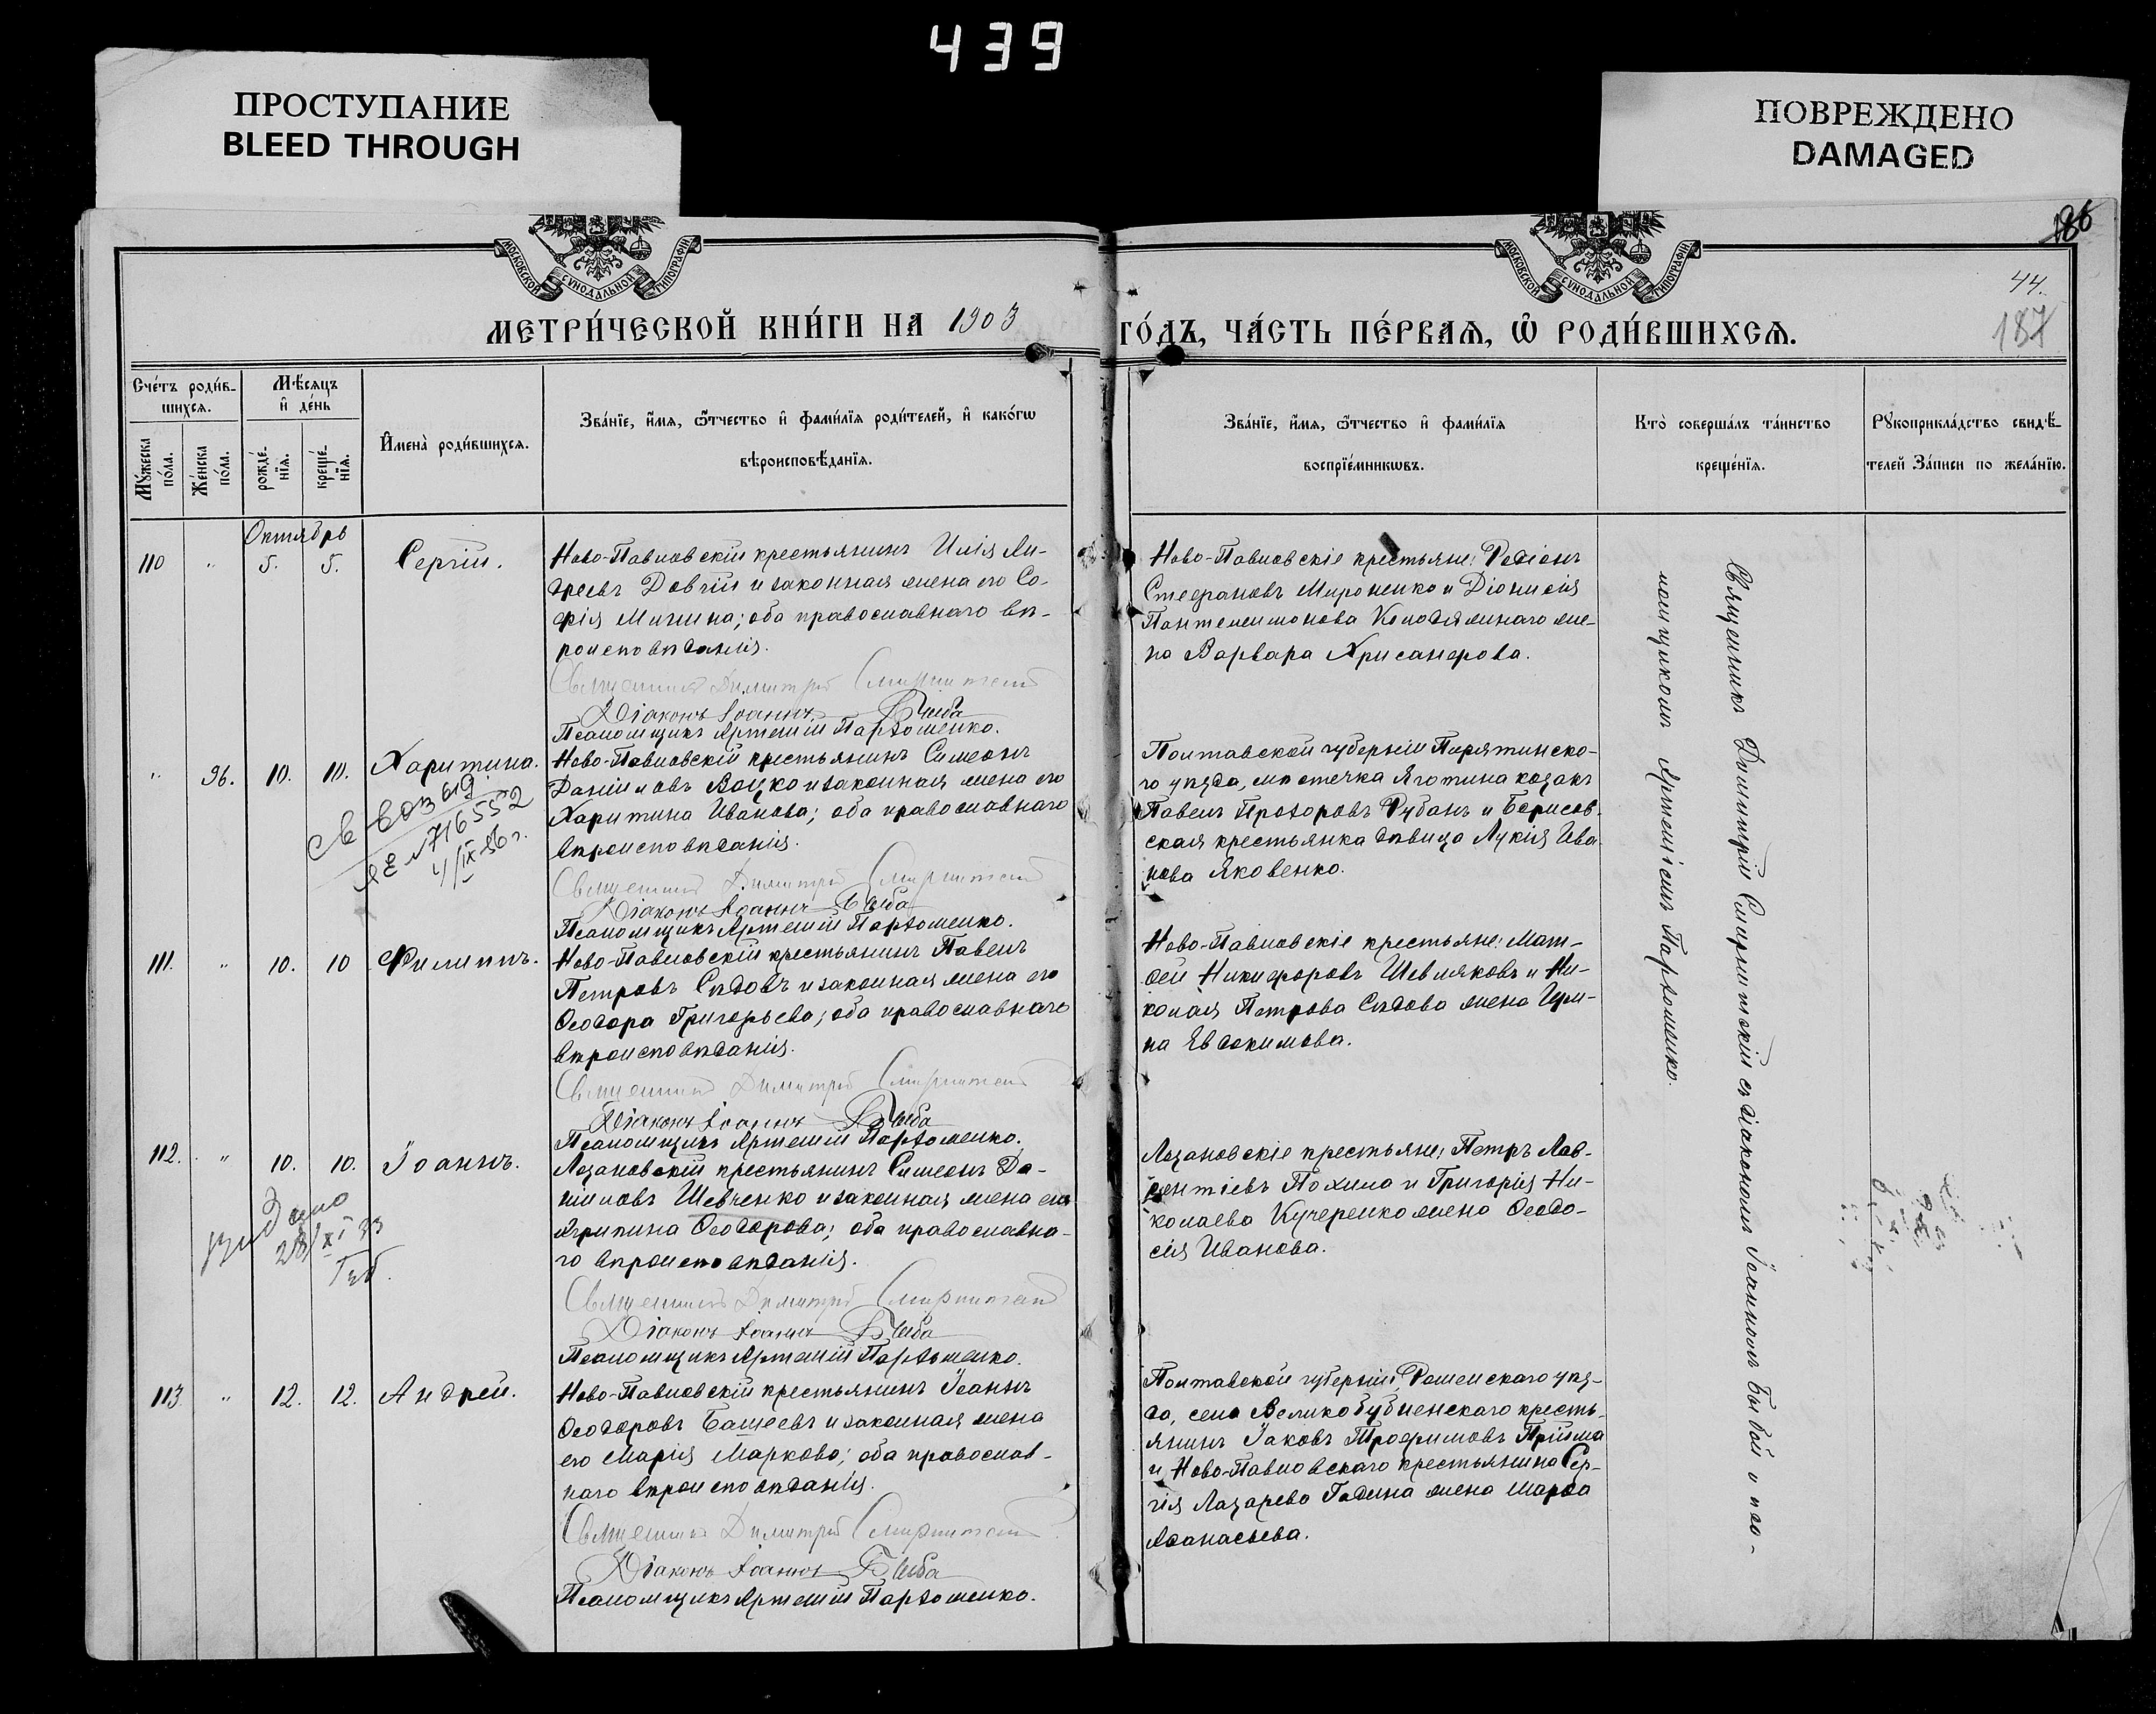 439
ПРОСТУПАНИЕ
BLEED THROUGH
ПОВРЕЖДЕНО
DAMAGED
186
44.
187
МОСКОВСКОЙ СѴНОДАЛЬНОЙ ТИПОГРАФІИ
МОСКОВСКОЙ СѴНОДАЛЬНОЙ ТИПОГРАФІИ
МЕТРИ́ЧЕСКОЙ КНИ́ГИ НА 1903 ГО́ДЪ, ЧА́СТЬ ПЕ́РВАѦ, Ѡ҆ РОДИ́ВШИХСѦ.
Сче́тъ роди́в-
шихсѧ.
Мѣ́сѧцъ
и҆ де́нь
Мꙋ́жеска
по́ла.
Же́нска
по́ла.
рожде́-
нїѧ.
креще́-
нїѧ.
И҆мена̀ роди́вшихсѧ.
Зва́нїе, и҆́мѧ, ѻ҆́тчество и҆ фами́лїѧ роди́телей, и҆ како́гѡ
вѣроисповѣ́данїѧ.
Зва́нїе, и҆́мѧ, ѻ҆́тчество и҆ фами́лїѧ
воспрїе́мникѡвъ.
Кто̀ соверша́лъ та́инство
креще́нїѧ.
Рꙋкоприкла́дство свидѣ́-
телей за́писи по жела́нїю.
Октябрь
110 " 5. 5. Сергій.
Ново-Павловскій крестьянинъ Илія Ан-
дреевъ Довгій и законная жена его Со-
фія Минина; оба православнаго вѣ-
роисповѣданія.
Священникъ Димитрій Смирнитскій
Діаконъ Іоаннъ Быба
Псаломщикъ Артемій Пархоменко.
Ново-Павловскіе крестьяне: Родіонъ
Стефановъ Мироненко и Діонисія
Пантелеимонова Колодяжнаго же-
на Варвара Хрисанфова.
" 96. 10. 10. Харитина.
716552
4/IX-56 г.
Ново-Павловскій крестьянинъ Симеонъ
Даніиловъ Воцко и законная жена его
Харитина Иванова; оба православнаго
вѣроисповѣданія.
Священникъ Димитрій Смирнитскій
Діаконъ Іоаннъ Быба
Псаломщикъ Артемій Пархоменко.
Полтавской губерніи Пирятинско-
го уѣзда, мѣстечка Яготина козакъ
Павелъ Прохоровъ Рубанъ и Борисов-
ская крестьянка дѣвица Лукія Ива-
нова Яковенко.
111. " 10. 10 Филиппъ.
Ново-Павловскій крестьянинъ Павелъ
Петровъ Сѣдовъ и законная жена его
Ѳеодора Григорьева; оба православнаго
вѣроисповѣданія.
Священникъ Димитрій Смирнитскій
Діаконъ Іоаннъ Быба
Псаломщикъ Артемій Пархоменко.
Ново-Павловскіе крестьяне: Мат-
ѳей Никифоровъ Шевляковъ и Ни-
колая Петрова Сѣдова жена Ири-
на Евдокимова.
112. " 10. 10. Іоаннъ.
Видано
28/XI 33
Лозановскій крестьянинъ Симеонъ Да-
ніиловъ Шевченко и законная жена его
Агрипина Ѳеодорова; оба православна-
го вѣроисповѣданія.
Священникъ Димитрій Смирнитскій
Діаконъ Іоаннъ Быба
Псаломщикъ Артемій Пархоменко.
Лозановскіе крестьяне: Петръ Лав-
рентіевъ Похила и Григорія Ни-
колаева Кучеренко жена Ѳеодо-
сія Иванова.
113. " 12. 12. Андрей.
Ново-Павловскій крестьянинъ Іоаннъ
Ѳеодоровъ Бащеевъ и законная жена
его Марія Маркова; оба православ-
наго вѣроисповѣданія.
Священникъ Димитрій Смирнитскій
Діаконъ Іоаннъ Быба
Псаломщикъ Артемій Пархоменко.
Полтавской губерніи, Роменскаго уѣз-
да, села Великобубненскаго кресть-
янинъ Іаковъ Трофимовъ Прійма
и Ново-Павловскаго крестьянина Сер-
гія Лазарева Година жена Марѳа
Аѳанасьева.
Священникъ Димитрій Смирнитскій съ діакономъ Іоанномъ Быбой и пса-
ломщикомъ Артеміемъ Пархоменко.